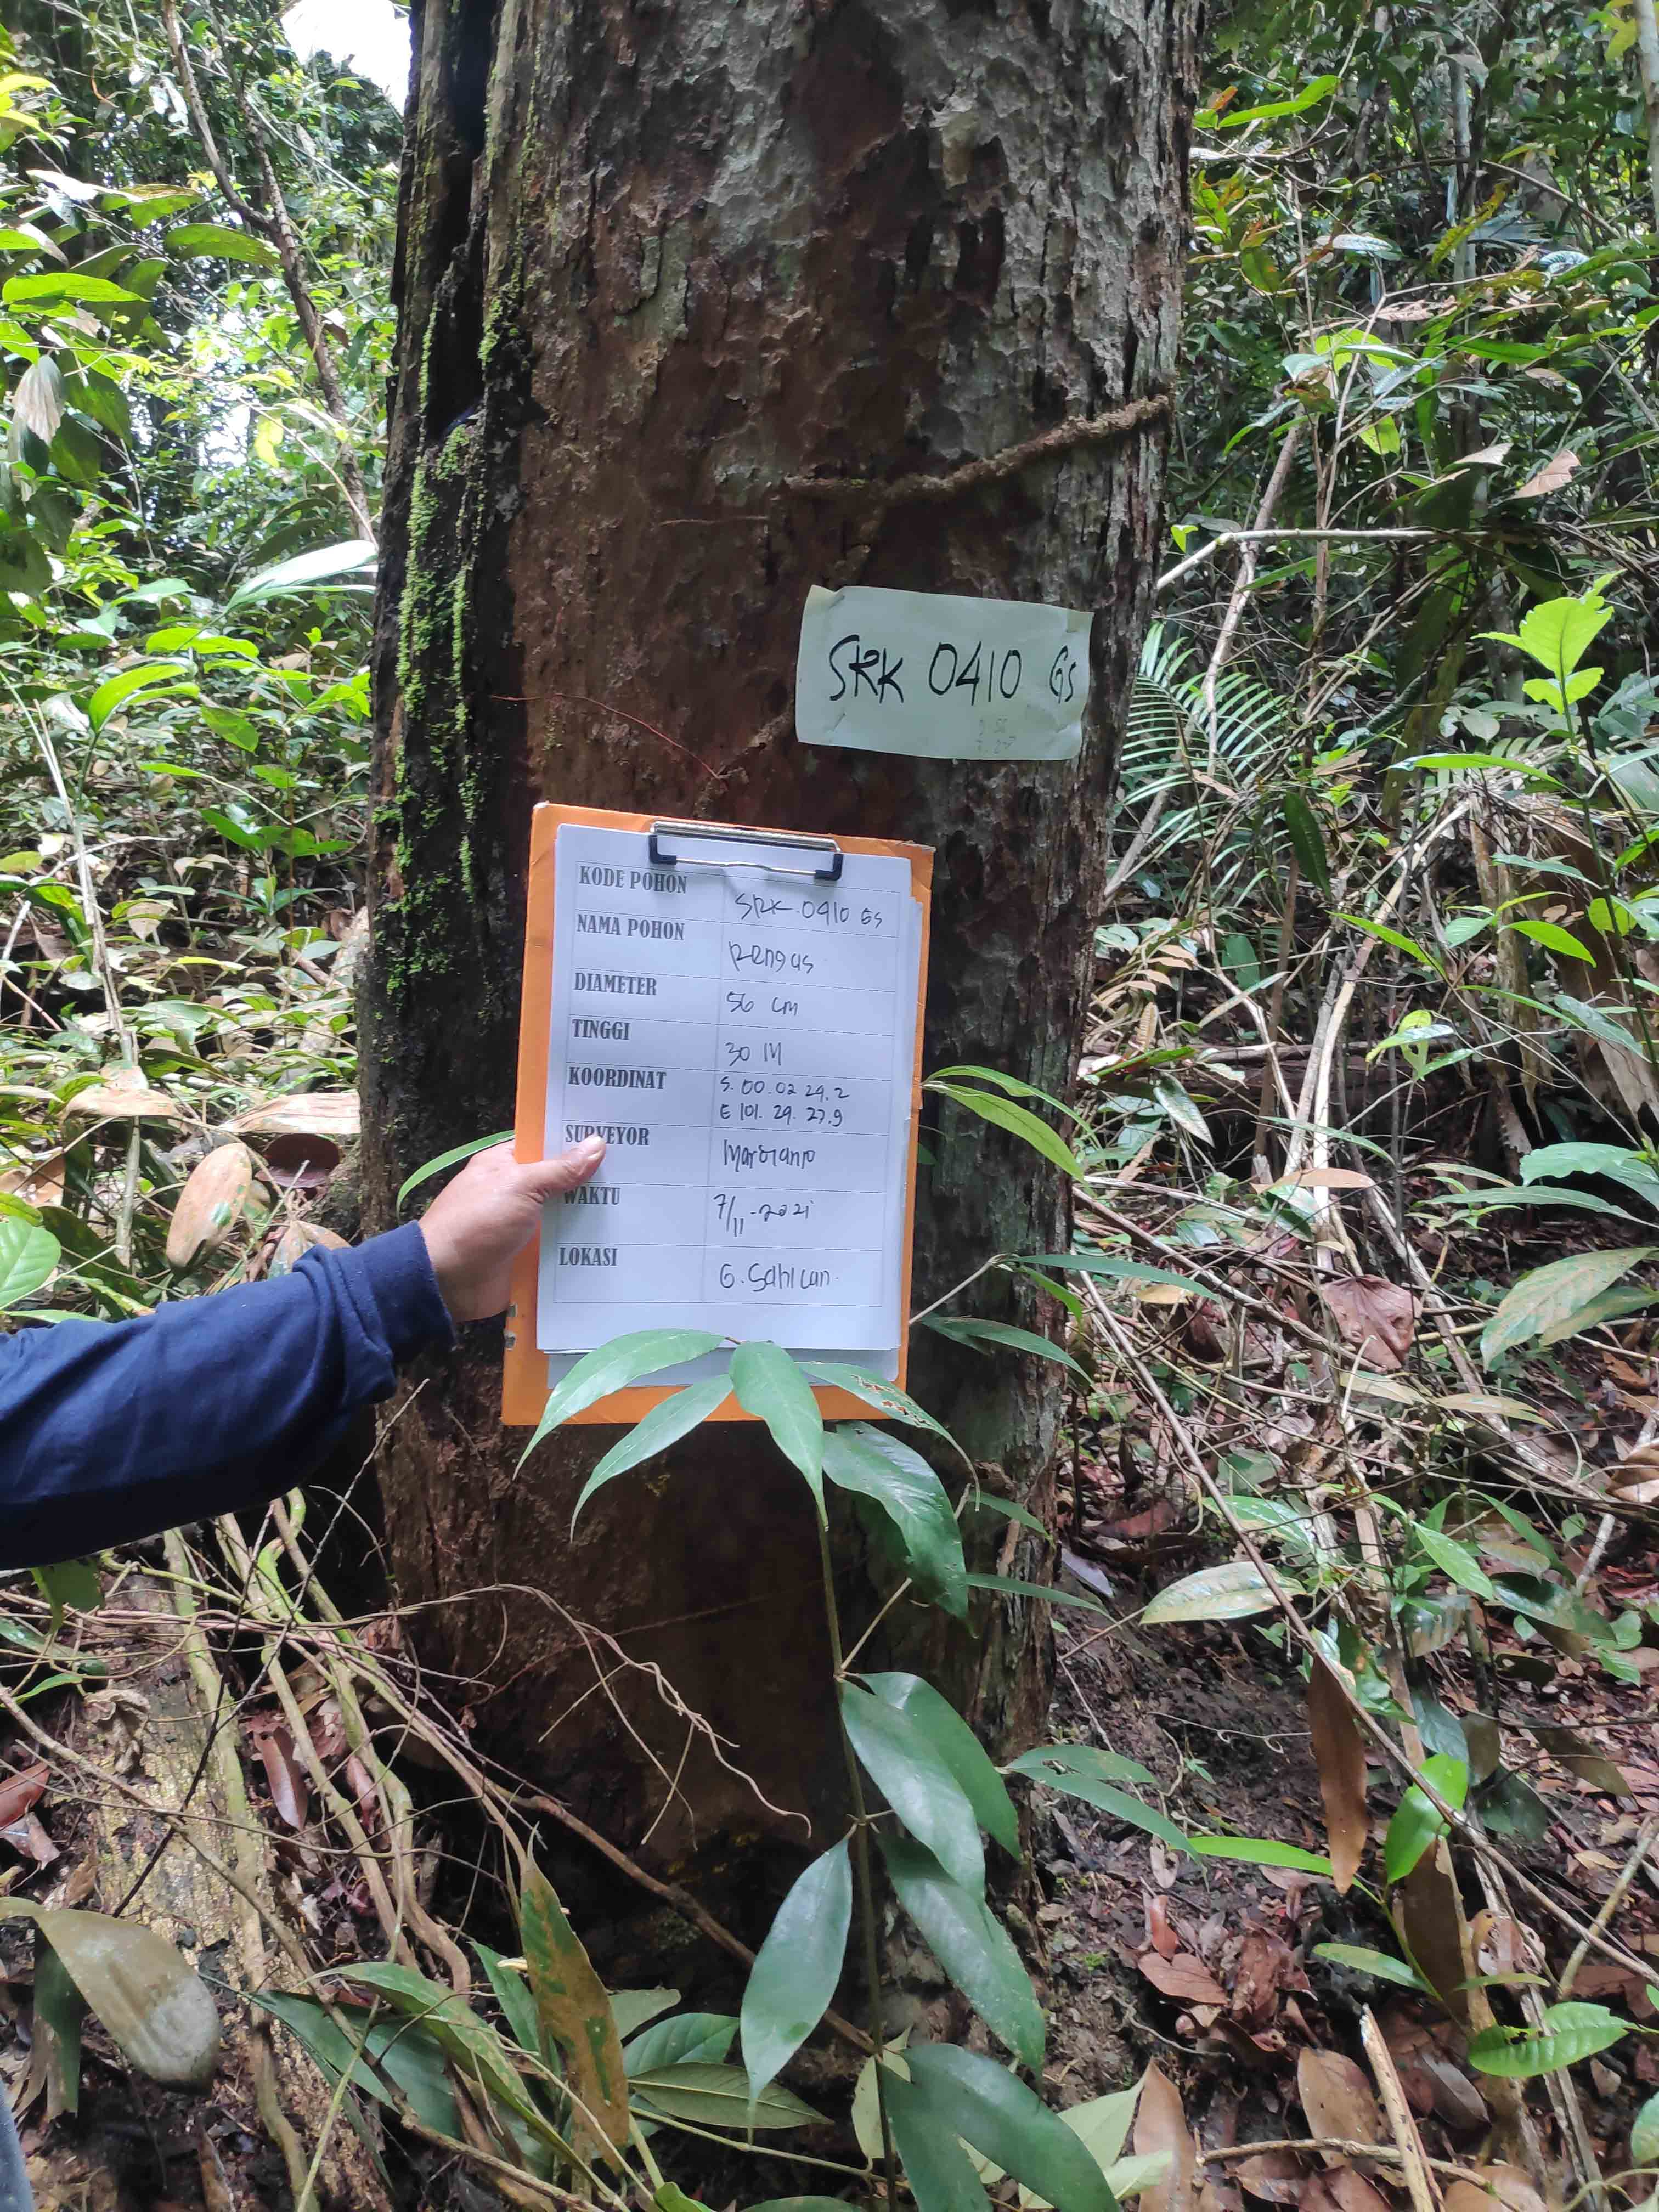 SRK 0410 GS
KODE POHON SRK.0410 GS
NAMA POHON Rengas
DIAMETER 56 cm
TINGGI 30 M
KOORDINAT S. 00.02 29.2
E 101. 29. 27.9
SURVEYOR
WAKTU 7/11-2021
LOKASI G. Sahilan.